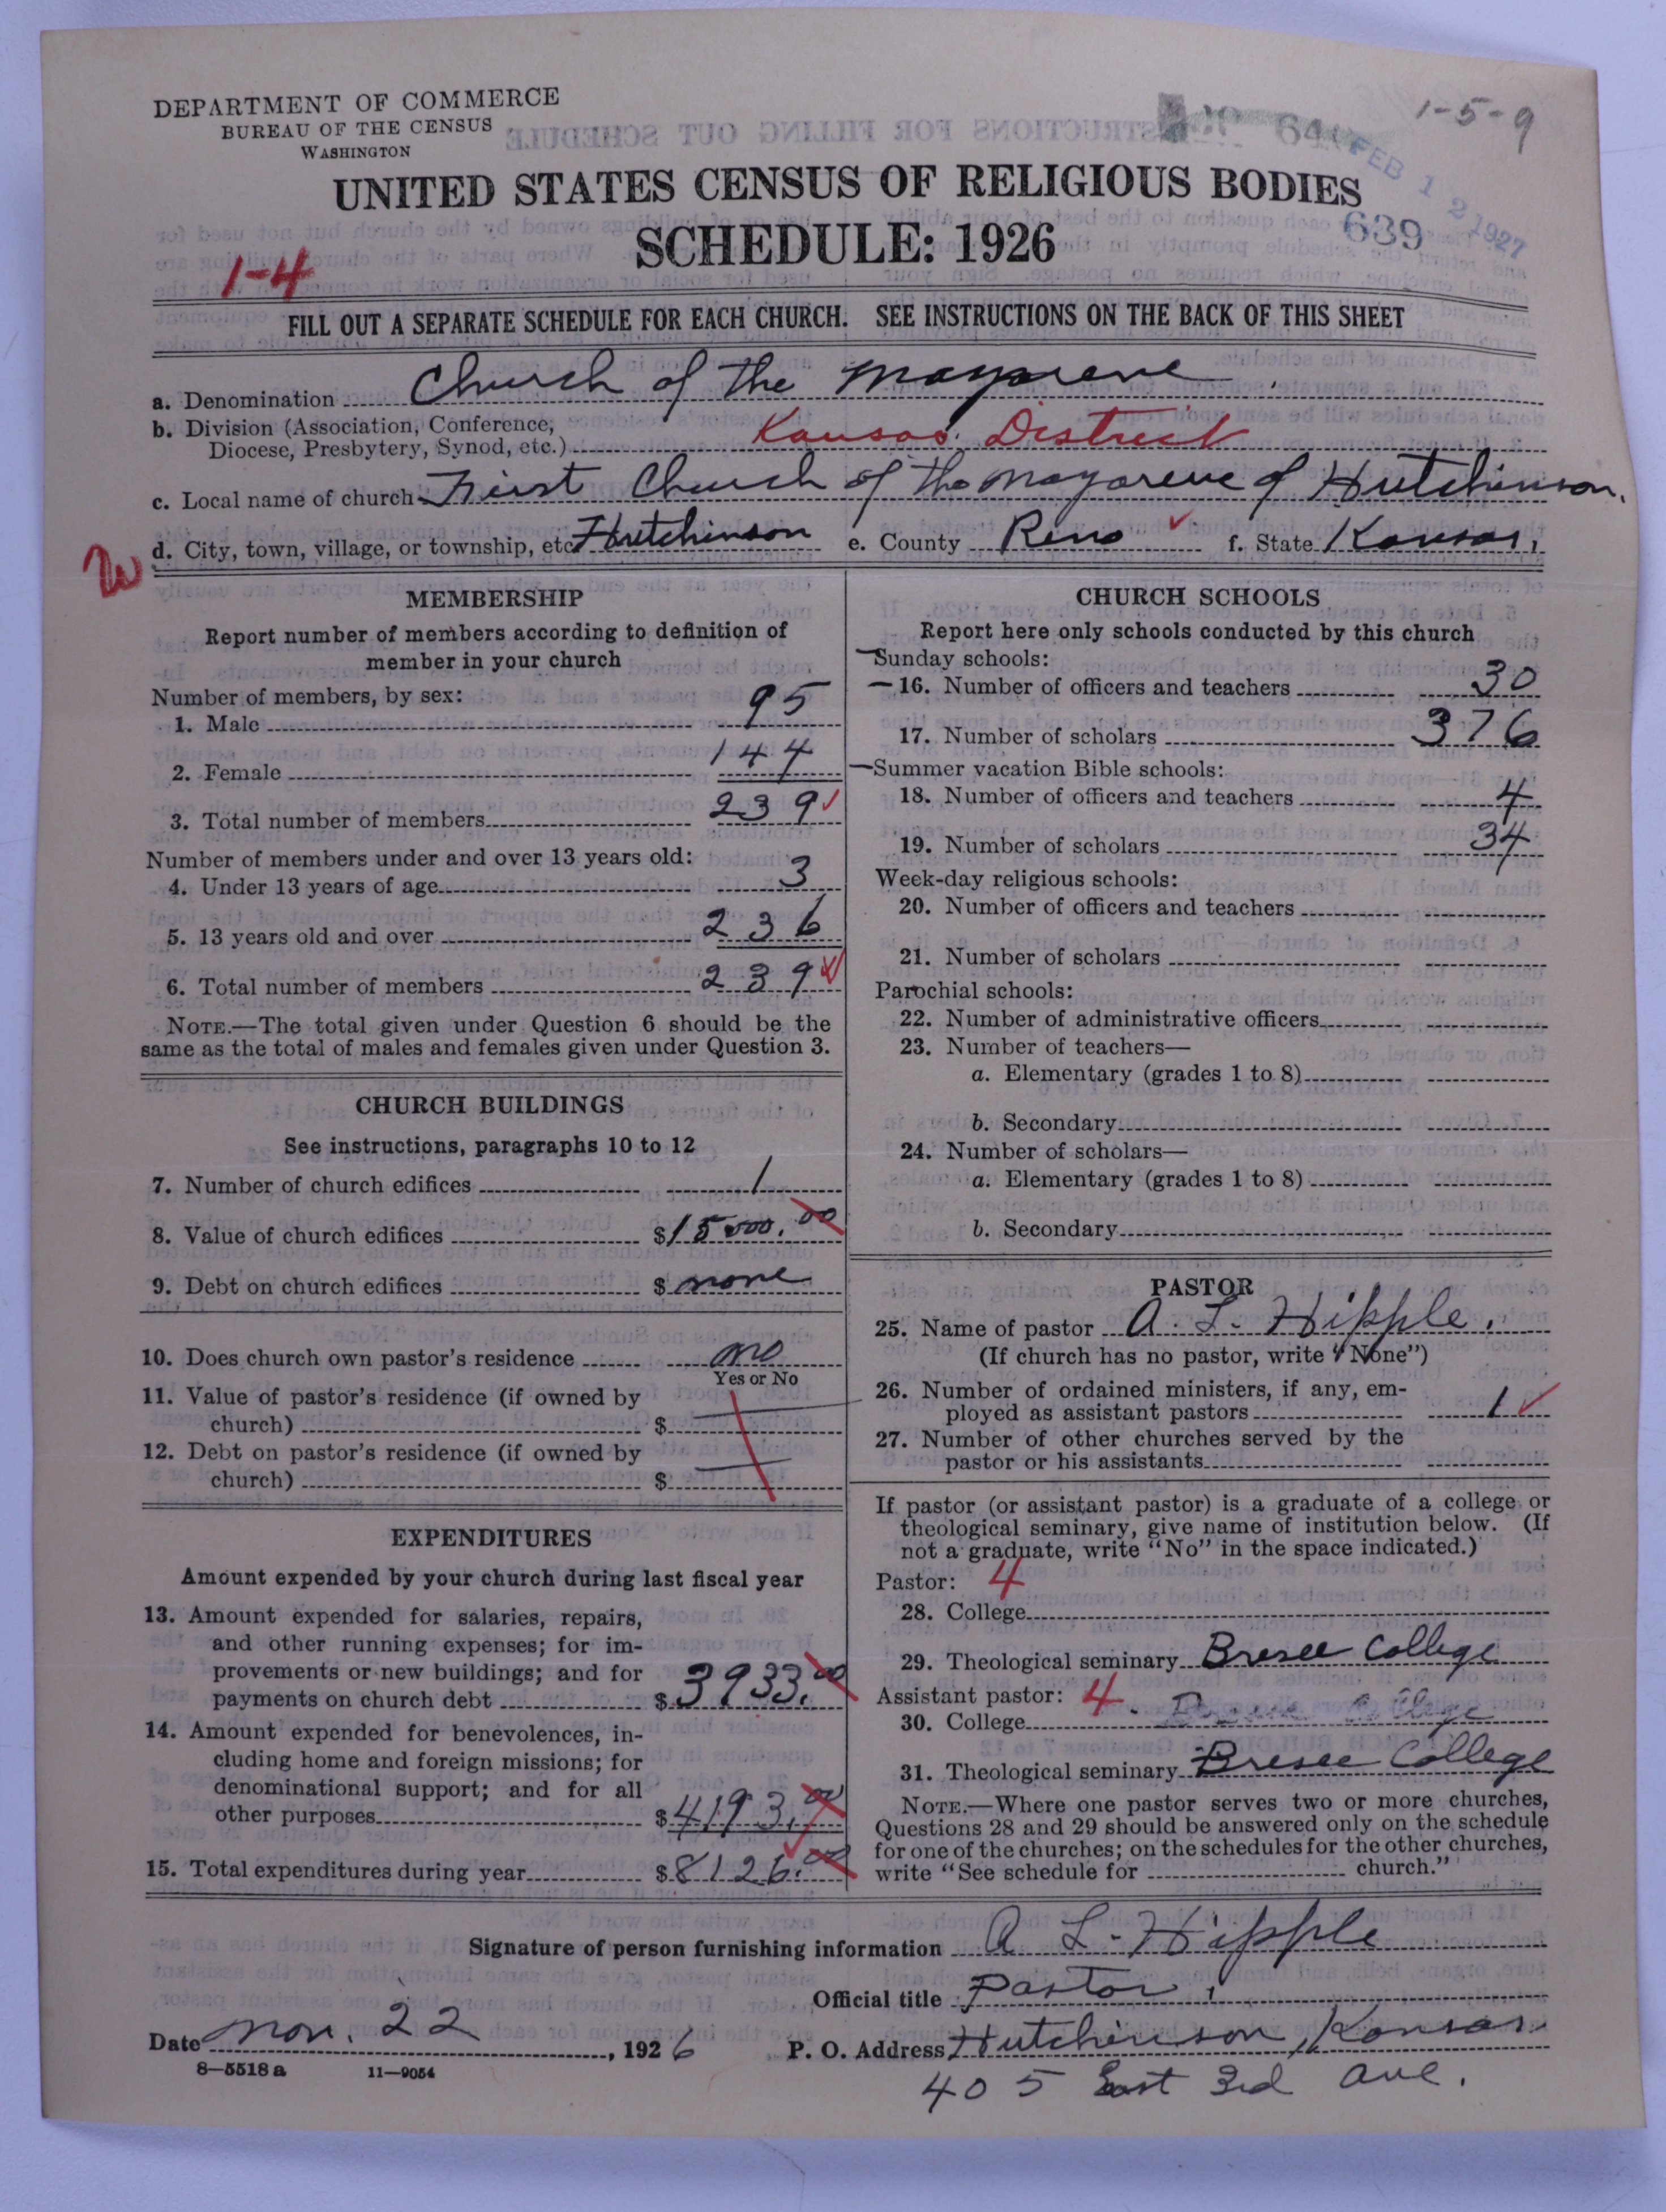 DEPARTMENT OF COMMERCE
BUREAU OF THE CENSUS
WASHINGTON
1-5-9
FEB 12 1927
639
UNITED STATES CENSUS OF RELIGIOUS BODIES
SCHEDULE: 1926
1-4
FILL OUT A SEPARATE SCHEDULE FOR EACH CHURCH. SEE INSTRUCTIONS ON THE BACK OF THIS SHEET
a. Denomination Church of the Nazarene.
b. Division (Association, Conference,
Diocese, Presbytery, Synod, etc.) Kansas District
c. Local name of church First Church of the Nazarene of Hutchinson.
d. City, town, village, or township, etc. Hutchinson e. County Reno f. State Kansas.
MEMBERSHIP
Report number of members according to definition of
member in your church
Number of members, by sex:
1. Male 95
2. Female 144
3. Total number of members 239
Number of members under and over 13 years old:
4. Under 13 years of age 3
5. 13 years old and over 236
6. Total number of members 239
NOTE.—The total given under Question 6 should be the
same as the total of males and females given under Question 3.
CHURCH BUILDINGS
See instructions, paragraphs 10 to 12
7. Number of church edifices 1
8. Value of church edifices $15000.00
9. Debt on church edifices $ none
10. Does church own pastor's residence no
Yes or No
11. Value of pastor's residence (if owned by
church) $
12. Debt on pastor's residence (if owned by
church) $
EXPENDITURES
Amount expended by your church during last fiscal year
13. Amount expended for salaries, repairs,
and other running expenses; for im-
provements or new buildings; and for
payments on church debt $3933.00
14. Amount expended for benevolences, in-
cluding home and foreign missions; for
denominational support; and for all
other purposes $4193.00
15. Total expenditures during year $8126.00
CHURCH SCHOOLS
Report here only schools conducted by this church
Sunday schools:
16. Number of officers and teachers 30
17. Number of scholars 376
Summer vacation Bible schools:
18. Number of officers and teachers 4
19. Number of scholars 34
Week-day religious schools:
20. Number of officers and teachers
21. Number of scholars
Parochial schools:
22. Number of administrative officers
23. Number of teachers—
a. Elementary (grades 1 to 8)
b. Secondary
24. Number of scholars—
a. Elementary (grades 1 to 8)
b. Secondary
PASTOR
25. Name of pastor A. L. Hipple.
(If church has no pastor, write "None")
26. Number of ordained ministers, if any, em-
ployed as assistant pastors 1
27. Number of other churches served by the
pastor or his assistants
If pastor (or assistant pastor) is a graduate of a college or
theological seminary, give name of institution below. (If
not a graduate, write "No" in the space indicated.)
Pastor: 4
28. College
29. Theological seminary Bresee College
Assistant pastor: 4
30. College Bresee College
31. Theological seminary Bresee College
NOTE.—Where one pastor serves two or more churches,
Questions 28 and 29 should be answered only on the schedule
for one of the churches; on the schedules for the other churches,
write "See schedule for church."
Signature of person furnishing information A L. Hipple
Official title Pastor.
Date Nov. 22, 1926 P. O. Address Hutchinson, Kansas.
8-5518a 11-9054
405 East 3rd Ave.